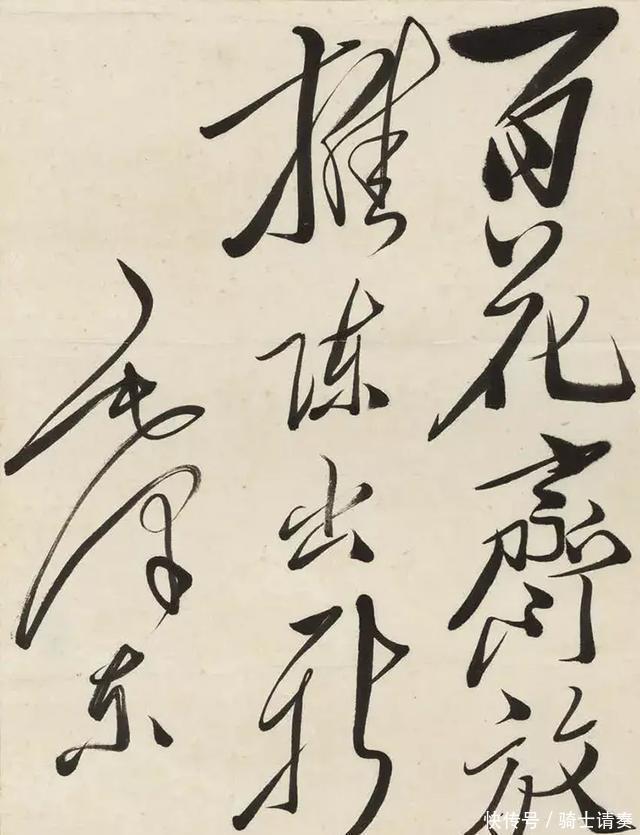 百花齊放
推陳出新
毛泽东
快传号/骑士请奏